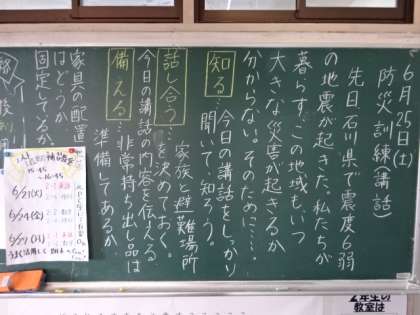 6月25日(土)
防災訓練講話)
先日石川県で震度6弱
の地震が起きた。私たちが
暮らす、この地域もいつ
大きな災害が起きるか
分からない。そのために……
知る…今日の講話をしっかり
聞いて知ろう。
話し合う…家族と避難場所
を決めておく。
今日の講話の内容を伝える
備える…非常持ち出し品は
準備してあるか
家具の配置
はどうか
固定してるか
6/21(火)
6/24(金)
6/27(月)
2年生の
教室は